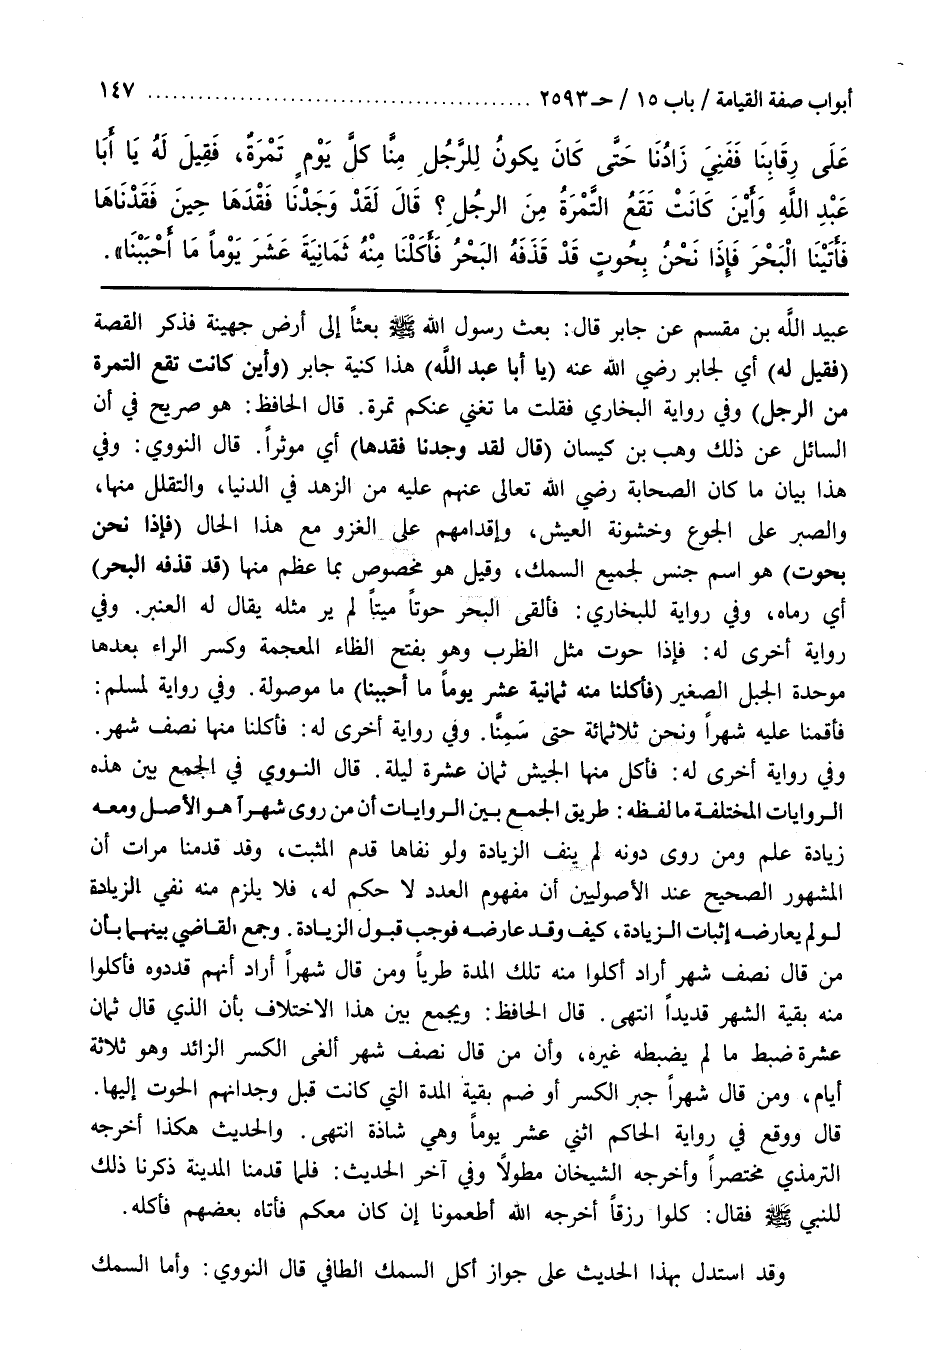 أبواب صفة القيامة / باب ١٥ / حـ ٢٥٩٣ ........................................ ١٤٧
عَلَى رِقَابِنَا فَفَنِيَ زَادُنَا حَتَّى كَانَ يكونُ لِلرَّجُلِ مِنَّا كلَّ يَوْمٍ تَمْرَةٌ، فَقِيلَ لَهُ يَا أَبَا
عَبْدِ اللَّهِ وَأَيْنَ كَانَتْ تَقَعُ التَّمْرَةُ مِنَ الرجُلِ؟ قَالَ لَقَدْ وَجَدْنَا فَقْدَهَا حِينَ فَقَدْنَاهَا
فَأَتَيْنَا الْبَحْرَ فَإِذَا نَحْنُ بِحُوتٍ قَدْ قَذَفَهُ البَحْرُ فَأَكَلْنَا مِنْهُ ثَمَانِيَةَ عَشَرَ يَوْماً مَا أَحْبَبْنَا».
عبيد اللَّه بن مقسم عن جابر قال: بعث رسول الله ﷺ بعثاً إلى أرض جهينة فذكر القصة
(فقيل له) أي لجابر رضي الله عنه (يا أبا عبد اللَّه) هذا كنية جابر (وأين كانت تقع التمرة
من الرجل) وفي رواية البخاري فقلت ما تغني عنكم تمرة. قال الحافظ: هو صريح في أن
السائل عن ذلك وهب بن كيسان (قال لقد وجدنا فقدها) أي موثراً. قال النووي: وفي
هذا بيان ما كان الصحابة رضي الله تعالى عنهم عليه من الزهد في الدنيا، والتقلل منها،
والصبر على الجوع وخشونة العيش، وإقدامهم على الغزو مع هذا الحال (فإذا نحن
بحوت) هو اسم جنس لجميع السمك، وقيل هو مخصوص بما عظم منها (قد قذفه البحر)
أي رماه، وفي رواية للبخاري: فألقى البحر حوتاً ميتاً لم ير مثله يقال له العنبر. وفي
رواية أخرى له: فإذا حوت مثل الظرب وهو بفتح الظاء المعجمة وكسر الراء بعدها
موحدة الجبل الصغير (فأكلنا منه ثمانية عشر يوماً ما أحببنا) ما موصولة. وفي رواية لمسلم:
فأقمنا عليه شهراً ونحن ثلاثمائة حتى سَمِنَّا. وفي رواية أخرى له: فأكلنا منها نصف شهر.
وفي رواية أخرى له: فأكل منها الجيش ثمان عشرة ليلة. قال النووي في الجمع بين هذه
الروايات المختلفة ما لفظه: طريق الجمع بين الروايات أن من روى شهراً هو الأصل ومعه
زيادة علم ومن روى دونه لم ينف الزيادة ولو نفاها قدم المثبت، وقد قدمنا مرات أن
المشهور الصحيح عند الأصوليين أن مفهوم العدد لا حكم له، فلا يلزم منه نفي الزيادة
لو لم يعارضه إثبات الزيادة، كيف وقد عارضه فوجب قبول الزيادة. وجمع القاضي بينهما بأن
من قال نصف شهر أراد أكلوا منه تلك المدة طرياً ومن قال شهراً أراد أنهم قددوه فأكلوا
منه بقية الشهر قديداً انتهى. قال الحافظ: ويجمع بين هذا الاختلاف بأن الذي قال ثمان
عشرة ضبط ما لم يضبطه غيره، وأن من قال نصف شهر ألغى الكسر الزائد وهو ثلاثة
أيام، ومن قال شهراً جبر الكسر أو ضم بقية المدة التي كانت قبل وجدانهم الحوت إليها.
قال ووقع في رواية الحاكم اثني عشر يوماً وهي شاذة انتهى. والحديث هكذا أخرجه
الترمذي مختصراً وأخرجه الشيخان مطولاً وفي آخر الحديث: فلما قدمنا المدينة ذكرنا ذلك
للنبي ﷺ فقال: كلوا رزقاً أخرجه الله أطعمونا إن كان معكم فأتاه بعضهم فأكله.
وقد استدل بهذا الحديث على جواز أكل السمك الطافي قال النووي: وأما السمك